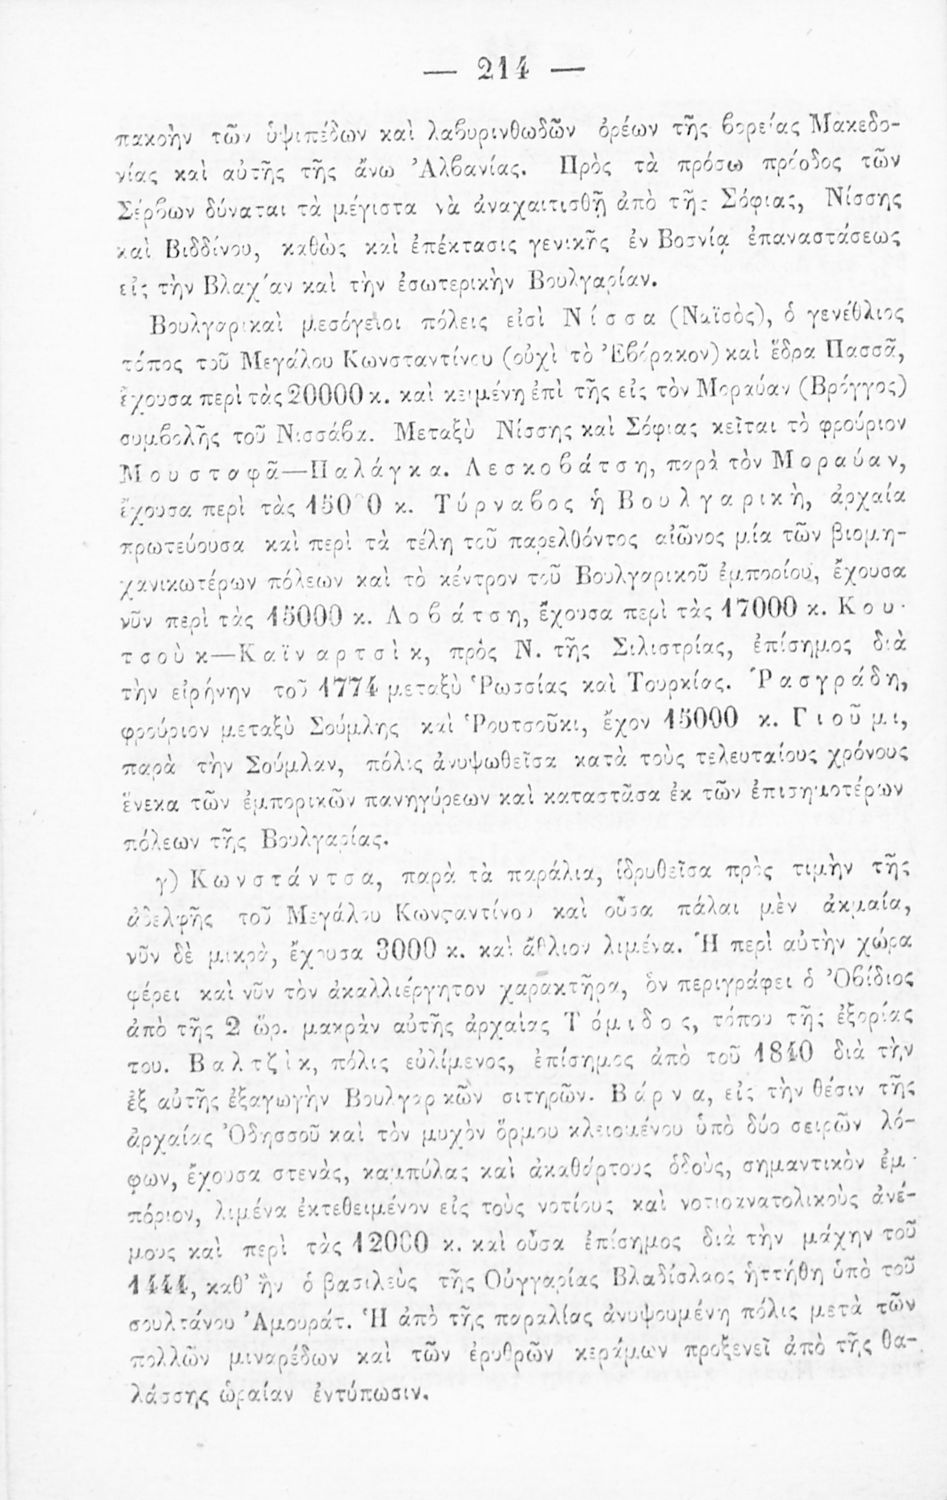 — 214 —
πακοὴν τῶν ὑψιπέδων καὶ λαβυρινθωδῶν ὀρέων τῆς βορείας Μακεδο-
νίας καὶ αὐτῆς τῆς ἄνω Ἀλβανίας. Πρὸς τὰ πρόσω πρόοδος τῶν
Σέρβων δύναται τὰ μέγιστα νὰ ἀναχαιτισθῇ ἀπὸ τῆς Σόφιας, Νίσσης
καὶ Βιδδίνου, καθὼς καὶ ἐπέκτασις γενικῆς ἐν Βοσνίᾳ ἐπαναστάσεως
εἰς τὴν Βλαχίαν καὶ τὴν ἐσωτερικὴν Βουλγαρίαν.
Βουλγαρικαὶ μεσόγειοι πόλεις εἰσὶ Νίσσα (Ναϊσὸς), ὁ γενέθλιος
τόπος τοῦ Μεγάλου Κωνσταντίνου (οὐχὶ τὸ Ἐβόρακον) καὶ ἕδρα Πασσᾶ,
ἔχουσα περὶ τὰς 20000 κ. καὶ κειμένη ἐπὶ τῆς εἰς τὸν Μοραύαν (Βρόγγος)
συμβολῆς τοῦ Νισσάβα. Μεταξὺ Νίσσης καὶ Σόφιας κεῖται τὸ φρούριον
Μουσταφᾶ—Παλάγκα. Λεσκοβάτση, παρὰ τὸν Μοραύαν,
ἔχουσα περὶ τὰς 15000 κ. Τύρναβος ἡ Βουλγαρικὴ, ἀρχαία
πρωτεύουσα καὶ περὶ τὰ τέλη τοῦ παρελθόντος αἰῶνος μία τῶν βιομη-
χανικωτέρων πόλεων καὶ τὸ κέντρον τοῦ Βουλγαρικοῦ ἐμπορίου, ἔχουσα
νῦν περὶ τὰς 15000 κ. Λοβάτση, ἔχουσα περὶ τὰς 17000 κ. Κου-
τσοὺκ—Καϊναρτσὶκ, πρὸς Ν. τῆς Σιλιστρίας, ἐπίσημος διὰ
τὴν εἰρήνην τοῦ 1774 μεταξὺ Ῥωσσίας καὶ Τουρκίας. Ῥασγράδη,
φρούριον μεταξὺ Σούμλης καὶ Ῥουτσοῦκι, ἔχον 15000 κ. Γιοῦμι,
παρὰ τὴν Σούμλαν, πόλις ἀνυψωθεῖσα κατὰ τοὺς τελευταίους χρόνους
ἕνεκα τῶν ἐμπορικῶν πανηγύρεων καὶ καταστᾶσα ἐκ τῶν ἐπισημοτέρων
πόλεων τῆς Βουλγαρίας.
γ) Κωνστάντσα, παρὰ τὰ παράλια, ἱδρυθεῖσα πρὸς τιμὴν τῆς
ἀδελφῆς τοῦ Μεγάλου Κωνςαντίνου καὶ οὖσα πάλαι μὲν ἀκμαία,
νῦν δὲ μικρὰ, ἔχουσα 3000 κ. καὶ ἄθλιον λιμένα. Ἡ περὶ αὐτὴν χώρα
φέρει καὶ νῦν τὸν ἀκαλλιέργητον χαρακτῆρα, ὃν περιγράφει ὁ Ὀβίδιος
ἀπὸ τῆς 2 ὥρ. μακρὰν αὐτῆς ἀρχαίας Τόμιδος, τόπου τῆς ἐξορίας
του. Βαλτζὶκ, πόλις εὐλίμενος, ἐπίσημος ἀπὸ τοῦ 1840 διὰ τὴν
ἐξ αὐτῆς ἐξαγωγὴν Βουλγαρικῶν σιτηρῶν. Βάρνα, εἰς τὴν θέσιν τῆς
ἀρχαίας Ὀδησσοῦ καὶ τὸν μυχὸν ὅρμου κλειομένου ὑπὸ δύο σειρῶν λό-
φων, ἔχουσα στενὰς, καμπύλας καὶ ἀκαθάρτους ὁδοὺς, σημαντικὸν ἐμ-
πόριον, λιμένα ἐκτεθειμένον εἰς τοὺς νοτίους καὶ νοτιοανατολικοὺς ἀνέ-
μους καὶ περὶ τὰς 12000 κ. καὶ οὖσα ἐπίσημος διὰ τὴν μάχην τοῦ
1444, καθ’ ἣν ὁ βασιλεὺς τῆς Οὑγγαρίας Βλαδίσλαος ἡττήθη ὑπὸ τοῦ
σουλτάνου Ἀμουράτ. Ἡ ἀπὸ τῆς παραλίας ἀνυψουμένη πόλις μετὰ τῶν
πολλῶν μιναρέδων καὶ τῶν ἐρυθρῶν κεράμων προξενεῖ ἀπὸ τῆς θα-
λάσσης ὡραίαν ἐντύπωσιν.